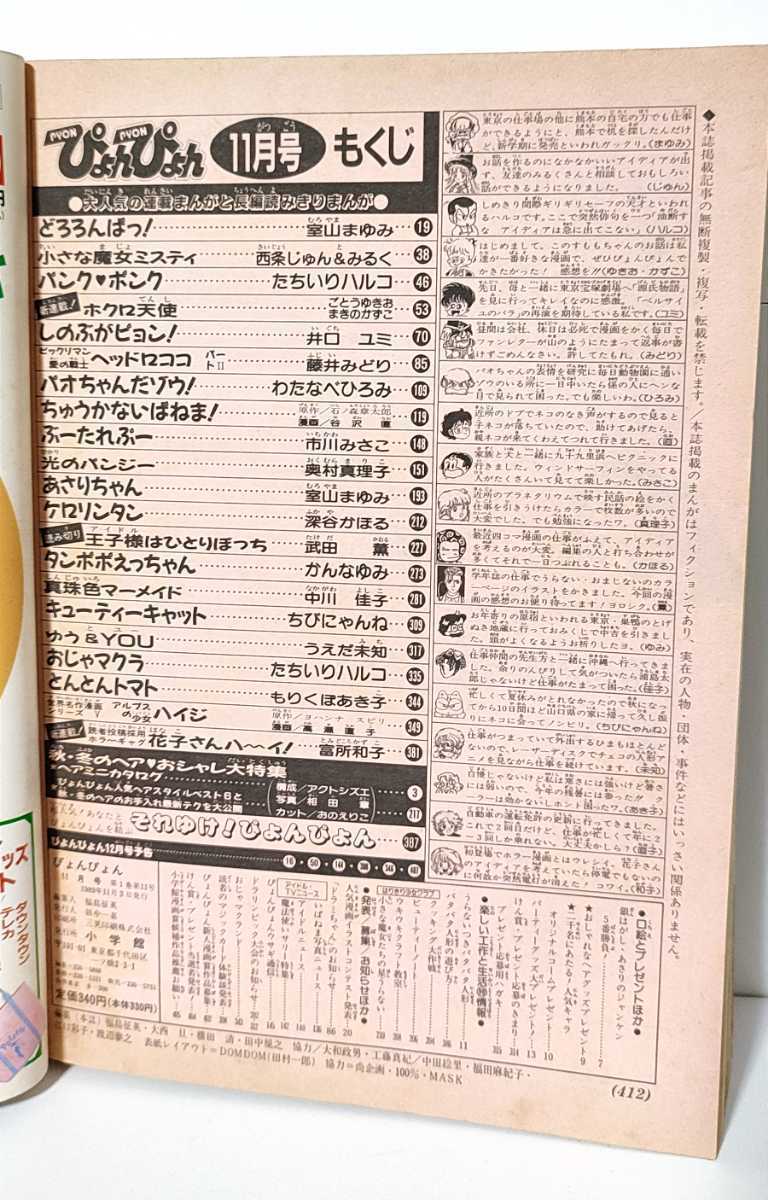 PYON PYON
ぴょんぴょん 11月号 もくじ
●大人気の連載まんがと長編読みきりまんが●
どろろんぱっ! 室山まゆみ 19
小さな魔女ミスティ 西条じゅん&みるく 38
パンク♥ポンク たちいりハルコ 46
新連載! ホクロ天使 ごとうゆきお まきのかずこ 53
しのぶがピョン! 井口ユミ 70
ビックリマン愛の戦士 ヘッドロココ パートII 藤井みどり 85
パオちゃんだゾウ! わたなべひろみ 109
ちゅうかないぱねま! 原作/石ノ森章太郎 漫画/谷沢直 119
ぶーたれぶー 市川みさこ 148
光のパンジー 奥村真理子 151
あさりちゃん 室山まゆみ 193
ケロリンタン 深谷かほる 212
読み切り 王子様はひとりぼっち 武田薫 227
タンポポえっちゃん かんなゆみ 273
真珠色マーメイド 中川佳子 281
キューティーキャット ちびにゃんね 309
ゆう&YOU うえだ未知 317
おじゃマクラ たちいりハルコ 335
とんとんトマト もりくぼあき子 344
世界名作漫画シリーズV アルプスの少女ハイジ 原作/ヨハンナ・スピリ 漫画/高瀬直子 349
新連載! 読者投稿採用ホラーギャグ 花子さんハ〜イ! 富所和子 381
秋・冬のヘア♥おシャレ大特集
ヘアミニカタログ 構成/アクトシズエ 3
ぴょんぴょん人気ヘアスタイルベスト6と
秋・冬のヘアのお手入れ最新テクを大公開
カット/おのえりこ
それゆけ!ぴょんぴょん 387
ぴょんぴょん12月号予告
東京の仕事場の他に熊本の自宅の方でも仕事
ができるようにと、熊本で机を探したんだけ
ど、新学期に発売といわれガックリ。(まゆみ)
お話を作るのになかなかいいアイディアが出
ず、友達のみるくさんと相談しておもしろい
話ができるようになりました。(じゅん)
しめきり間際ギリギリセーフの天才といわれ
るハルコです。ここで突然俳句を一つ「油断す
な アイディアは急に出てこない」(ハルコ)
はじめまして。このすももちゃんのお話は私
達が一番好きな漫画で、ぜひぴょんぴょんで
かきたかった! 感想を!!(ゆきお・かずこ)
先日、母と一緒に東京宝塚劇場へ「源氏物語」
を見に行ってキレイなのに感激。「ベルサイ
ユのバラ」の再演を期待している私です。(ユミ)
昼間は会社、休日は必死で漫画をかく毎日で
ファンレターが山のようにたまって返事が書
けずごめんなさい。許してたもれ。(みどり)
パオちゃんの表情を研究に毎日動物園に通い
ゾウのいる所に一日中いたら係の人にヘンな
目で見られて困った。でも楽しいわ。(ひろみ)
近所のドブでネコのなき声がするので見ると
子ネコが落ちていたので、助けてあげたら、
親ネコが来てくわえてつれて行きました。(直)
家族と犬と一緒に九十九里浜へピクニックに
行きました。ウィンドサーフィンをやってる
人がたくさんいて見てて楽しかった。(みさこ)
近所のプラネタリウムで映す民話の絵をかく
仕事を引きうけたらカラーで枚数が多いので
大変でした。でも勉強になったワ。(真理子)
最近四コマ漫画の仕事がふえて、アイディア
を考えるのが大変。編集の人と打ち合わせが
多くてそれで一日つぶれることも。(かほる)
学年誌の仕事でうらない・おまじないのカラ
ーページのイラストをかきました。今回の漫
画の感想のお便り待ってます!ヨロシク。(薫)
お年寄りの原宿といわれる東京・巣鴨のとげ
ぬき地蔵に行っておみくじで中吉を引きまし
た。頭がよくなるようお祈りしたヨ。(ゆみ)
仕事仲間の先生方と一緒に沖縄へ行ってきま
した。余りのんびりして気がついたら浦島太
郎じゃないけど仕事がたまって困った。(佳子)
忙しくて夏休みがとれなかったので秋になっ
てから10日間ほど山口県の家に帰って久し振
りにネコに会ってノンビリ。(ちびにゃんね)
仕事がつまっていて外出するひまもほとんど
ないので、レーザーディスクでチェコの人形ア
ニメを見ながら仕事を続けています。(未知)
自慢じゃないけど私は寒さには強いけど暑さ
には弱いので、今年の残暑には参った! ク
ーラーは効かないしホント困ったワ。(あき子)
自動車の運転免許の更新に行ってきました。
これで2回目だけど、仕事が忙しくて年に2
〜3回しか乗れない。大丈夫かしら?(直子)
初登場でホラー漫画とはウレシイ。花子さん
のアイディアを考えていたら停電でもないの
に何故か突然電灯が消えた! コワイ。(和子)
◆本誌掲載記事の無断複製・複写・転載を禁じます。/本誌掲載のまんがはフィクションであり、実在の人物・団体・事件などにはいっさい関係ありません。
●口絵とプレゼントほか●
銀はがし・あさりのジャンケン5番勝負 7
★おしゃれなヘアグッズプレゼント 9
★二千名にあたる!人気キャラ
オリジナルコームプレゼント 10
パーティーグッズ大プレゼント 13
けん賞・プレゼント応募のきまり 314
プレゼント応募用ハガキ 315
●楽しい工作と生活㊙情報●
うらないつきパタパタ人形 11
パタパタ人形の遊び方
はりきり少女クラブ
クッキング大作戦
ビューティーノート
ウキウキクラフト教室
小さな魔女たちの星うらない
●発表・募集・お知らせほか●
人気漫画イラストコンテスト発表 20
アイドル・TVニュース
「ドラミちゃん」ニュース
いぱねま写真ニュース
魔法使いサリー特集
おじゃマクラニュース
ドラリンピック大会のお知らせ
ぴょんぴょんウサギ通信
読者のマジックカード体験談発表
ぴょんぴょん新人漫画賞作品募集
けん賞・プレゼント当選者発表
小学館漫画賞候補作品推薦のお願い
ぴょんぴょん
11月号 第1巻第11号
1988年11月3日発行
編集人 福島征英
印刷所 三晃印刷株式会社
発行所 小学館
〒101-01 東京都千代田区
定価340円(本体330円)
表紙レイアウト=DOMDOM(田村一郎) 協力=尚企画・100%・MASK
協力/大和政男・工藤真紀/中田絵里・福田麻紀子・
(412)
ダウンタウン
テレカ